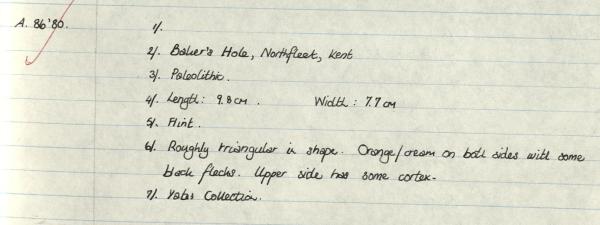 A. 86'80.
1/.
2/. Baker's Hole, Northfleet, Kent
3/. Paleolithic.
4/. Length: 9.8 cm. Width: 7.7 cm
5/. Flint.
6/. Roughly triangular in shape. Orange/cream on both sides with some
black flecks. Upper side has some cortex.
7/. Yates Collection.